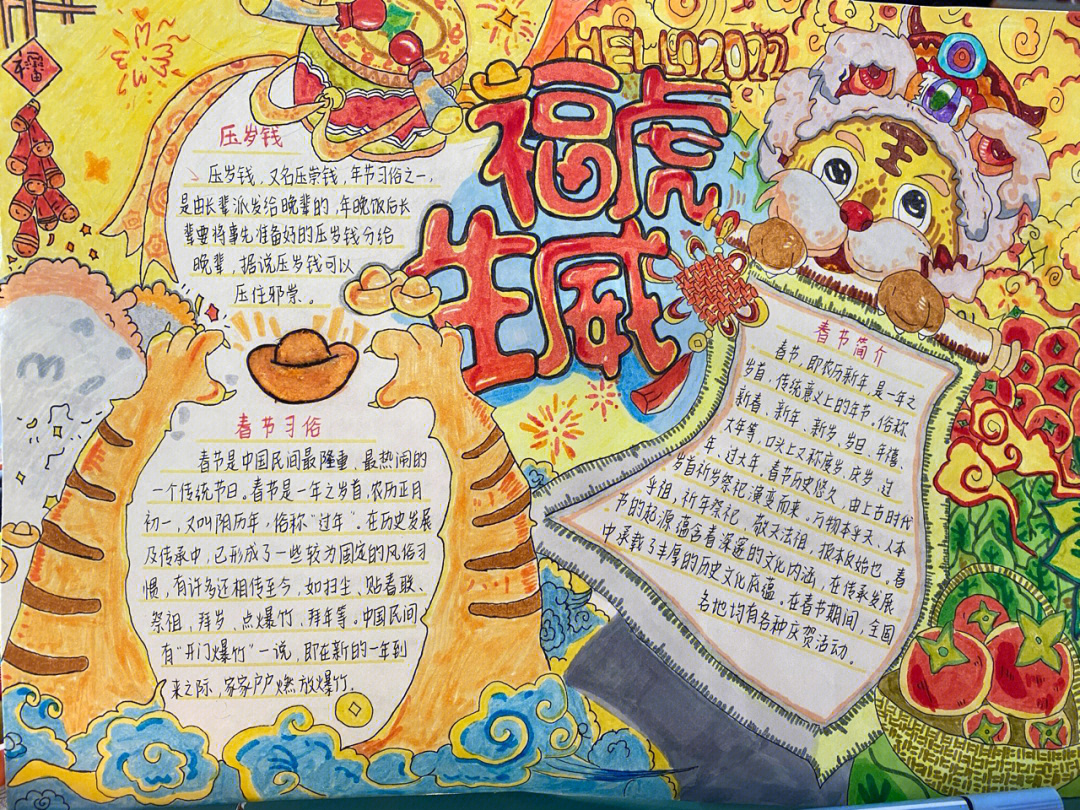 福
HELLO2022
福虎
生威
王
压岁钱
压岁钱，又名压祟钱，年节习俗之一，
是由长辈派发给晚辈的，年晚饭后长
辈要将事先准备好的压岁钱分给
晚辈，据说压岁钱可以
压住邪祟。
春节习俗
春节是中国民间最隆重、最热闹的
一个传统节日。春节是一年之岁首，农历正月
初一，又叫阴历年，俗称“过年”。在历史发展
及传承中，已形成了一些较为固定的风俗习
惯，有许多还相传至今，如扫尘、贴春联、
祭祖，拜岁、点爆竹，拜年等。中国民间
有“开门爆竹”一说，即在新的一年到
来之际，家家户户燃放爆竹。
春节简介
春节，即农历新年，是一年之
岁首，传统意义上的年节，俗称
新春、新年、新岁、岁旦、年禧、
大年等，口头上又称度岁、庆岁、过
年、过大年，春节历史悠久，由上古时代
岁首祈岁祭祀演变而来。万物本乎天、人本
乎祖，祈年祭祀、敬天法祖，报本反始也。春
节的起源蕴含着深邃的文化内涵，在传承发展
中承载了丰厚的历史文化底蕴。在春节期间，全国
各地均有各种庆贺活动。